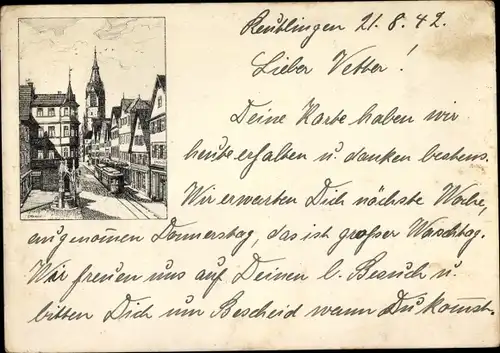 Reutlingen 21.8.42.
Lieber Vetter!
Deine Karte haben wir
heute erhalten u. danken bestens.
Wir erwarten Dich nächste Woche,
ausgenommen Donnerstag, das ist großer Waschtag.
Wir freuen uns auf Deinen l. Besuch u.
bitten Dich um Bescheid wann Du kommst.